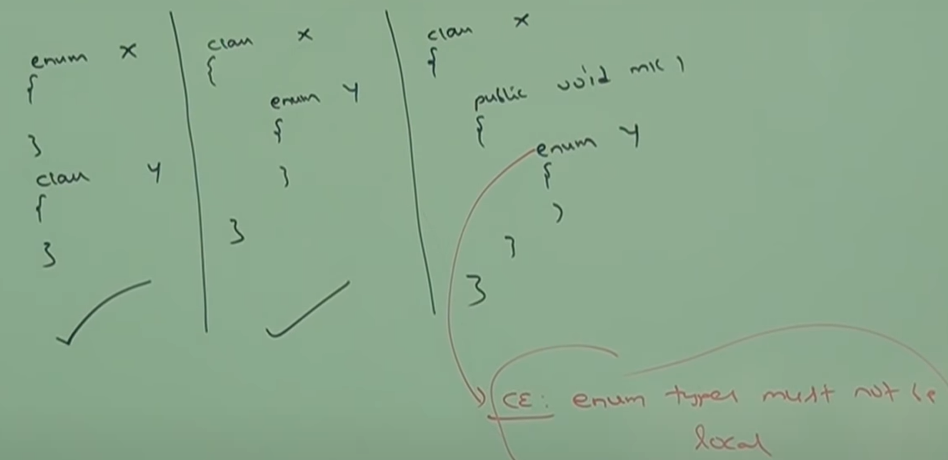 enum X
{
}
class Y
{
}
class X
{
enum Y
{
}
}
class X
{
public void m1( )
{
enum Y
{
}
}
}
CE: enum types must not be
local